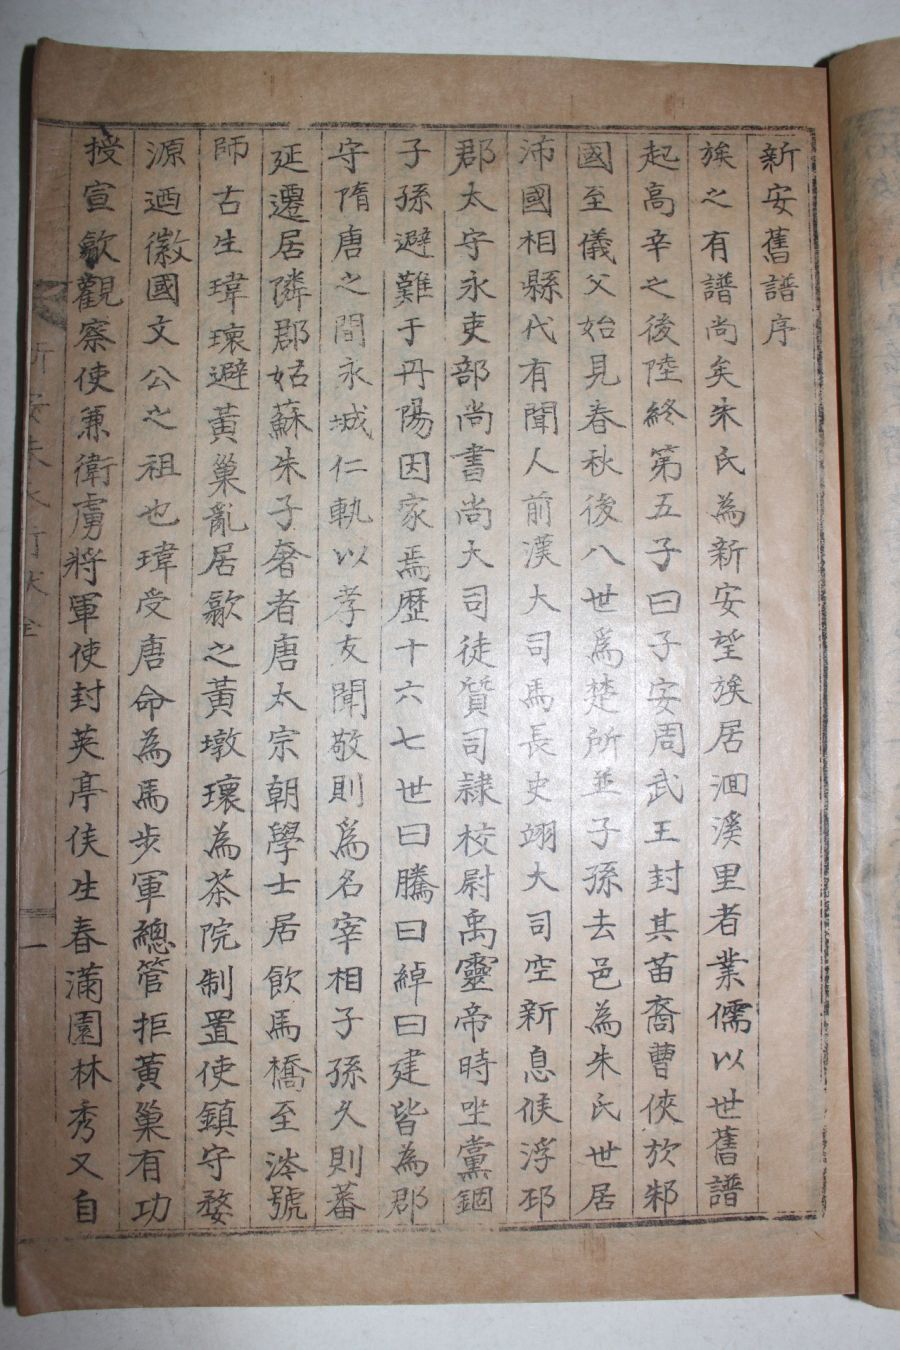 新安舊譜序
族之有譜尚矣朱氏為新安望族居洄溪里者業儒以世舊譜
起高辛之後陸終第五子曰子安周武王封其苗裔曹俠於邾
國至儀父始見春秋後八世爲楚所並子孫去邑為朱氏世居
沛國相縣代有聞人前漢大司馬長史翊大司空新息候浮邳
郡太守永吏部尚書尚大司徒質司隷校尉禹靈帝時坐黨錮
子孫避難于丹陽因家焉歷十六七世曰騰曰綽曰建皆為郡
守隋唐之間永城仁軌以孝友聞敬則爲名宰相子孫久則蕃
延遷居隣郡姑蘇朱子奢者唐太宗朝學士居飲馬橋至涔號
師古生瑋瓌避黃巢亂居歙之黃墩瓌為茶院制置使鎭守婺
源廼徽國文公之祖也瑋受唐命為馬步軍總管拒黄巢有功
授宣歙觀察使兼衛虜將軍使封英亭侯生春滿園林秀又自
新安朱
全
一